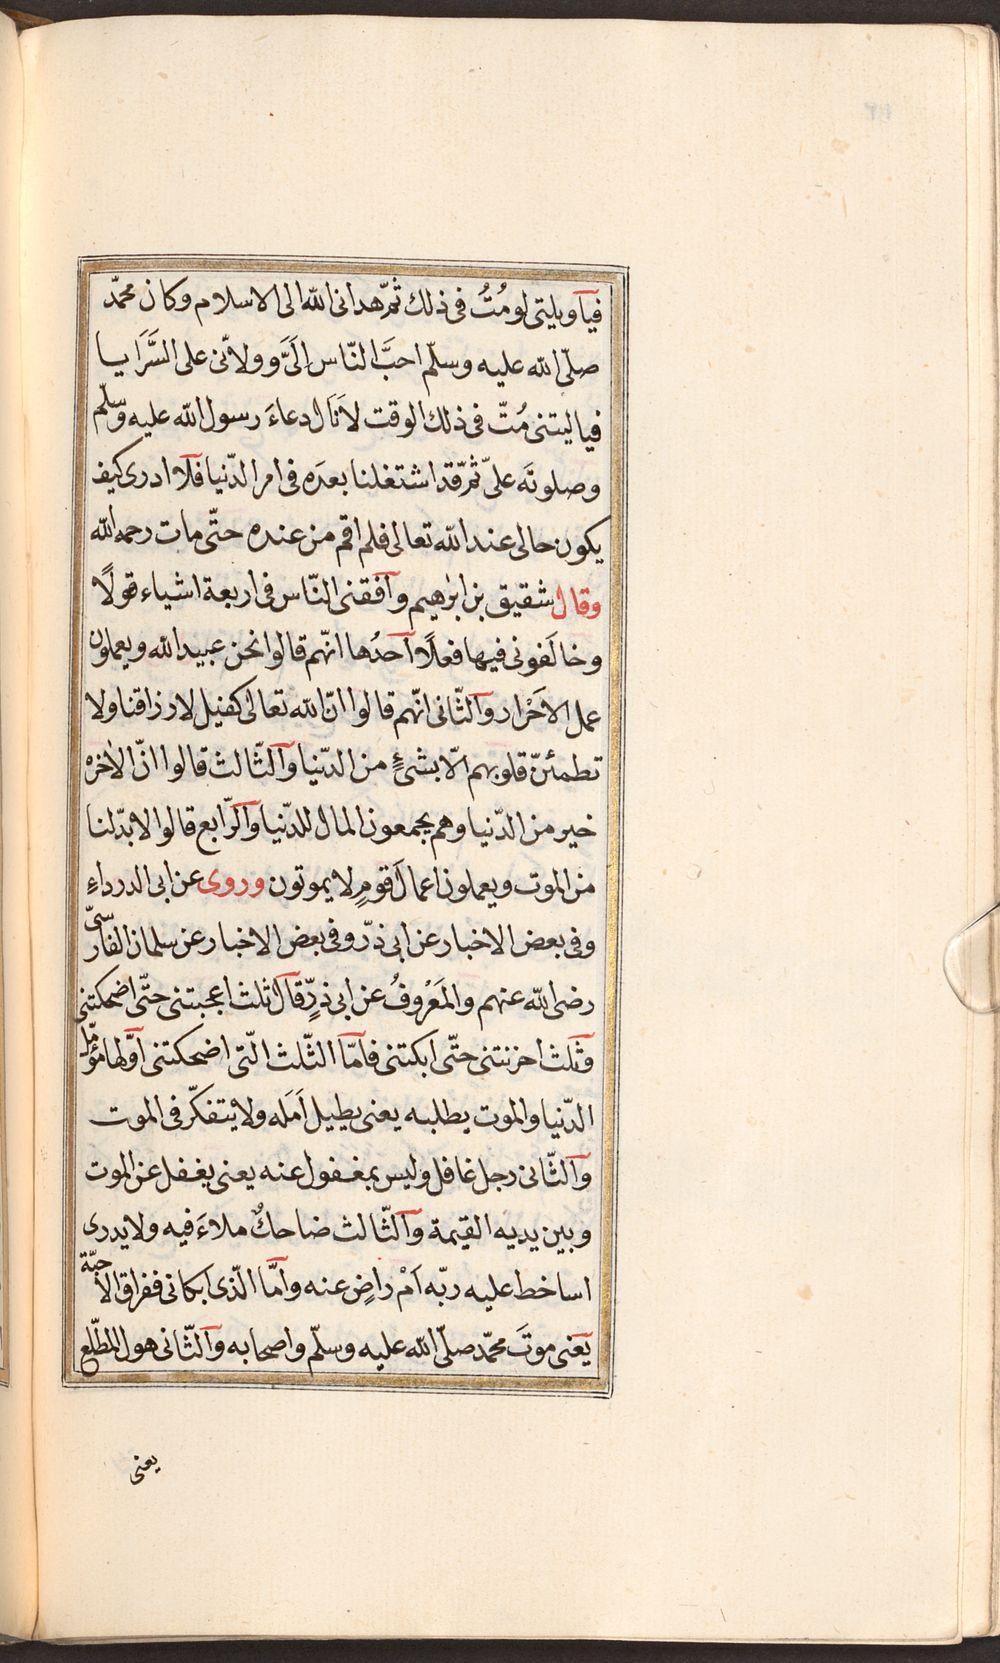 فيا ويلتى لو مُتُّ فى ذلك ثمّ هدانى الله الى الاسلام وكان محمّد
صلّى الله عليه وسلّم احبَّ النّاس الَىَّ وولاّنى على السَّرَايا
فيا ليتنى مُتّ فى ذلك الوقت لاَنَال دعاءَ رسول الله عليه وسلّم
وصلوتَه علىّ ثمّ قد اشتغلنا بعدَه فى امر الدّنيا فلا ادرى كيف
يكون حالى عند الله تعالى فلم اقم من عنده حتّى مات رحمه الله
وقال شقيق بن ابرهيم وآفقنى النّاس فى اربعة اشياء قولًا
وخالَفونى فيها فعلًا آحدُها انّهم قالوا نحن عبيد الله ويعملون
عمل الاَحْرار وآلثّانى انّهم قالوا انّ الله تعالى كفيل لارزاقنا ولا
تطمئنّ قلوبهم الّا بشىءٍ من الدّنيا وآلثّالث قالوا انّ الاخرة
خير من الدّنيا وهم يجمعون المال للدّنيا وآلرّابع قالوا لا بدّ لنا
من الموت ويعملون اعمالَ قومٍ لا يموتون وروى عن ابى الدرداءِ
وفى بعض الاخبار عن ابى ذرّ وفى بعض الاخبار عن سلمان الفارسىّ
رضى الله عنهم والمَعْروفُ عن ابى ذرٍّ قال ثلث اعجبتنى حتّى اضحكتنى
وثلث احزنتنى حتّى ابكتنى فامّا الثّلث الّتى اضحكتنى آوّلها مؤمّل
الدّنيا والموت يطلبه يعنى يطيل اَمَله ولا يتفكّر فى الموت
وآلثّانى رجل غافل وليس بمغفول عنه يعنى يغفل عن الموت
وبين يديه القيمة وآلثّالث ضاحكٌ ملاءَ فيه ولا يدرى
اساخط عليه ربّه اَمْ راضٍ عنه وآمّا الّذى ابكانى ففراق الاحبّة
يعنى موتَ محمّد صلّى الله عليه وسلّم واصحابه وآلثّانى هول المطّلع
يعنى